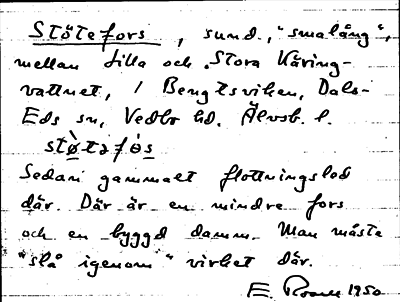 Stötefors, sund, "smalång",
mellan Lilla och Stora Käring-
vattnet, / Bengtsviken, Dals-
Eds sn, Vedbo hd. Älvsb. l.
stø̀tafós
Sedan gammalt flottningsled
där. Där är en mindre fors
och en byggd damm. Man måste
"slå igenom" virket där.
E. 1950